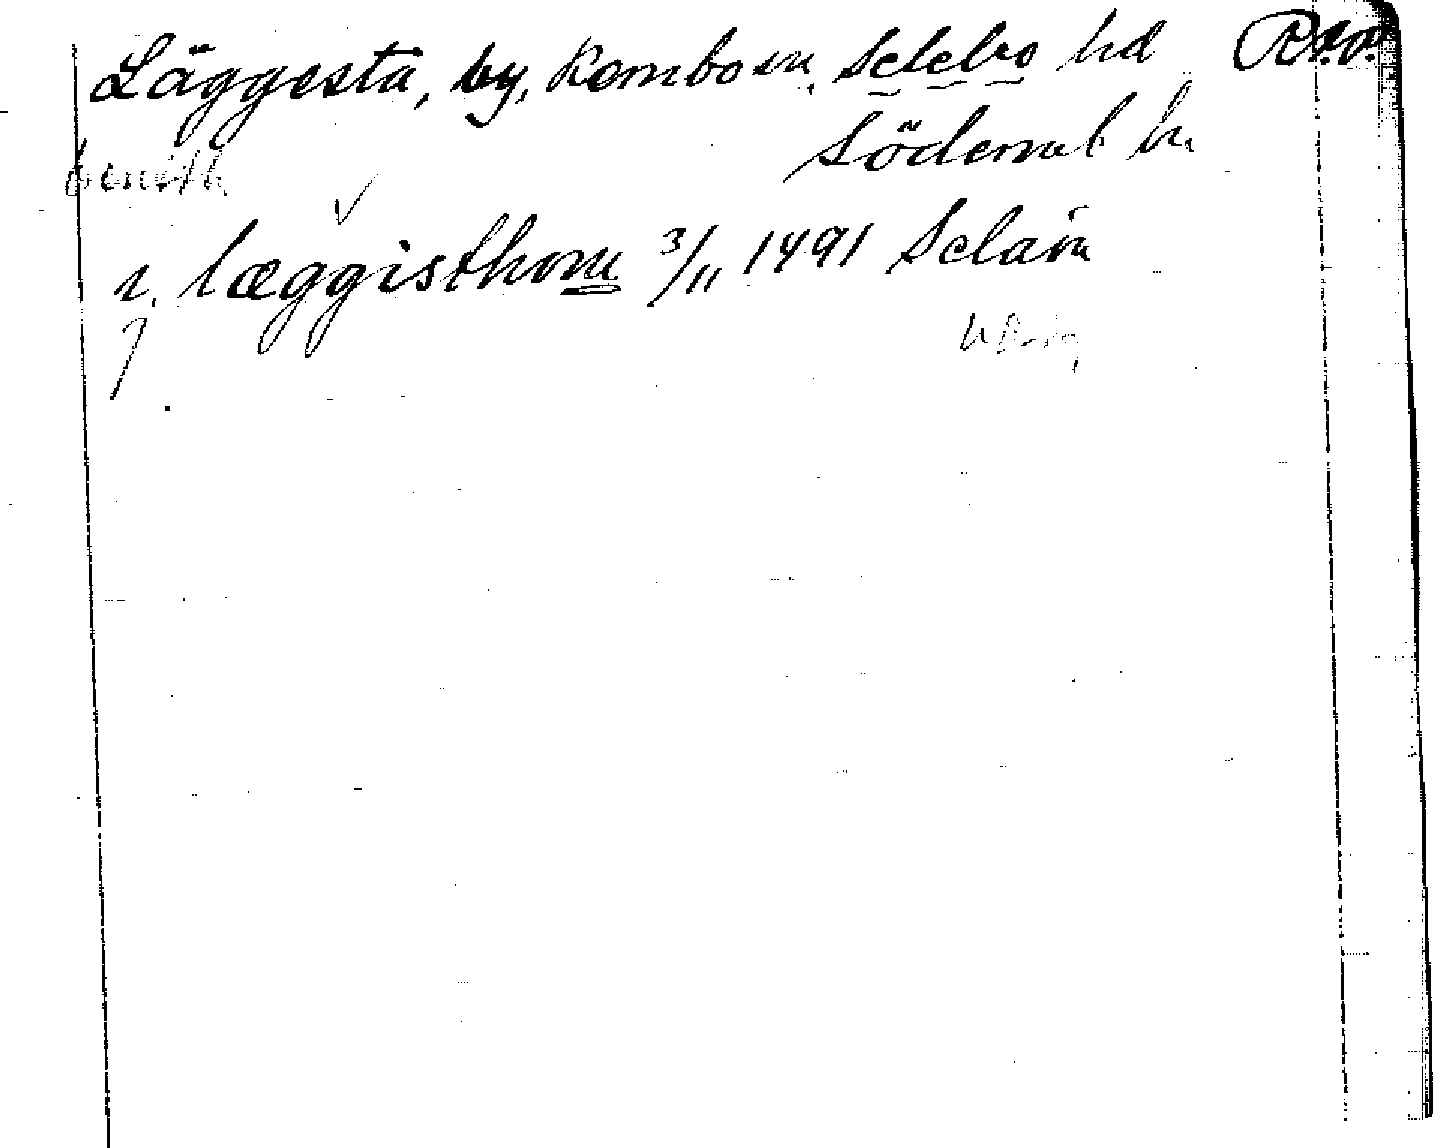 Läggesta, by, Kärnbo sn, Selebo hd
Södermanl. län
i læggisthom 3/11 1491 Selaön